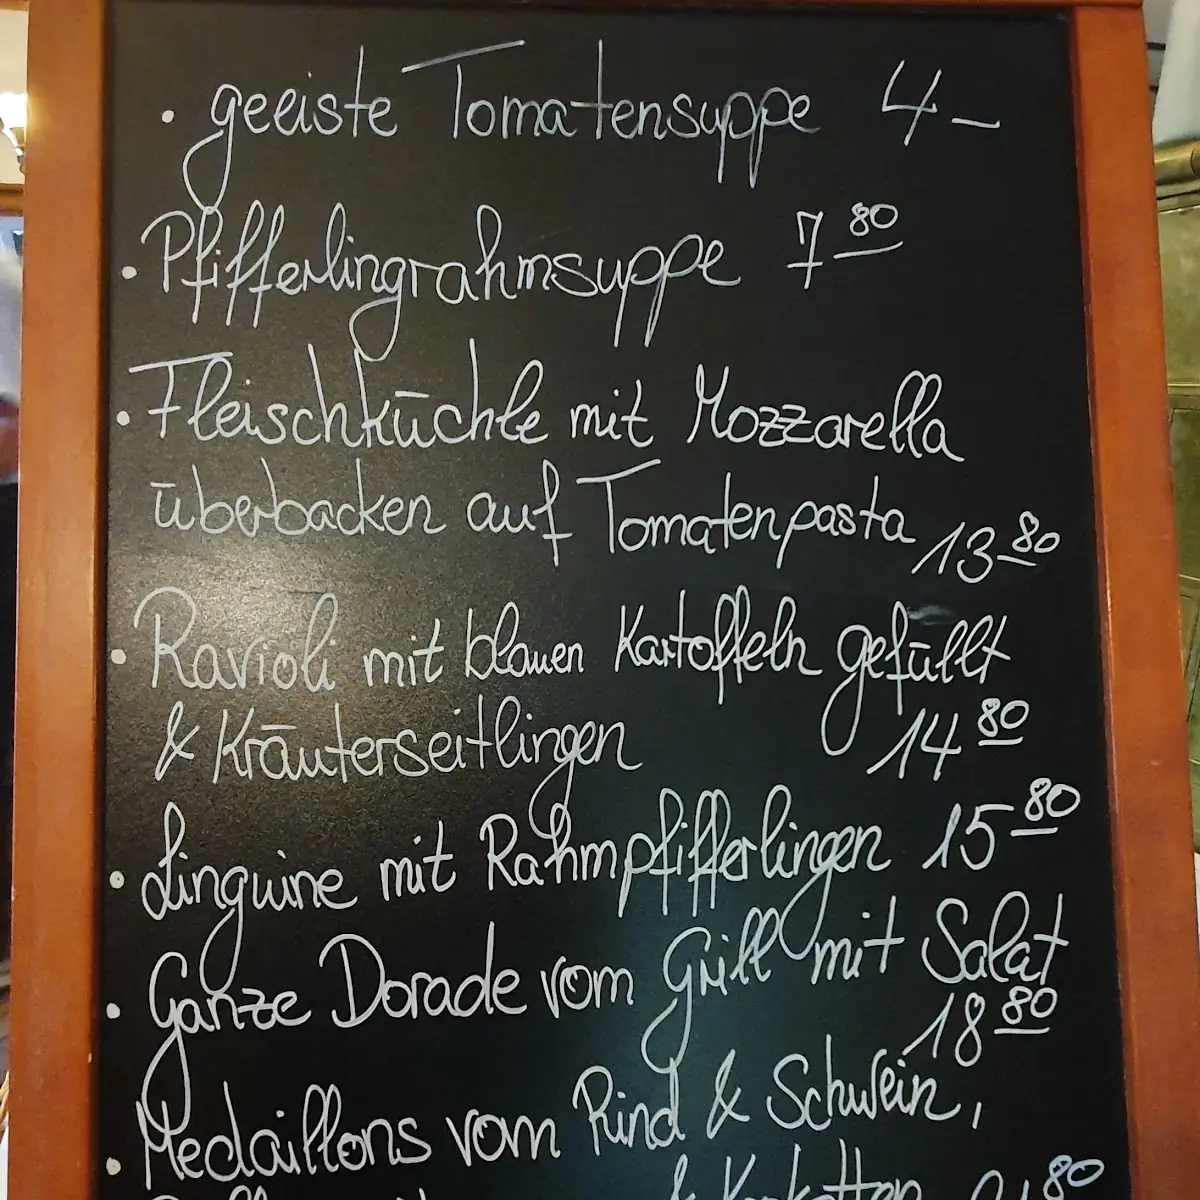 · geeiste Tomatensuppe 4 –
· Pfifferlingrahmsuppe 7 80
· Fleischküchle mit Mozzarella
überbacken auf Tomatenpasta 13 80
· Ravioli mit blauen Kartoffeln gefüllt
& Kräuterseitlingen 14 80
· Linguine mit Rahmpfifferlingen 15 80
· Ganze Dorade vom Grill mit Salat
18 80
· Medaillons vom Rind & Schwein,
& 80